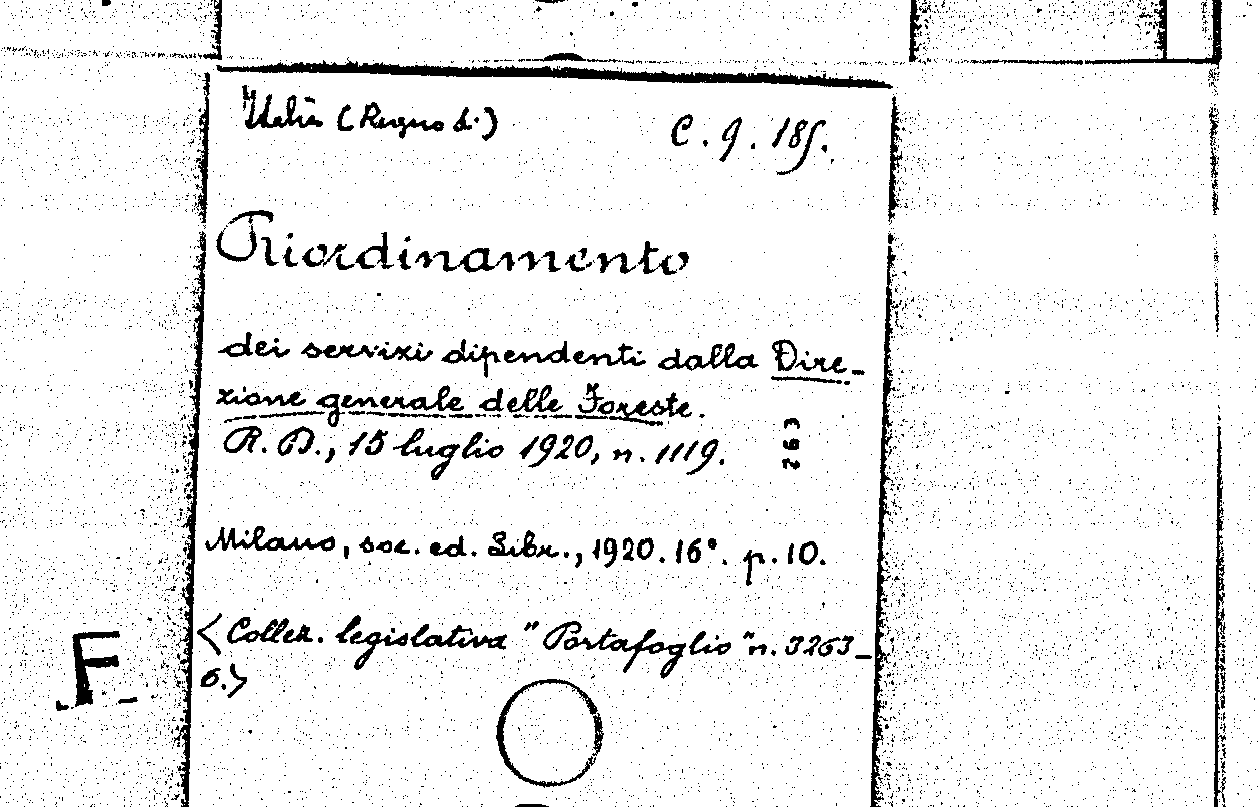 Italia (Regno d.)
C. 9. 185.
Riordinamento
dei servizi dipendenti dalla Dire-
zione generale delle Foreste.
R. D., 15 luglio 1920, n. 1119.
Milano, soc. ed. Libr., 1920. 16°. p. 10.
<Collez. legislativa "Portafoglio" n. 3263-
6.>
F